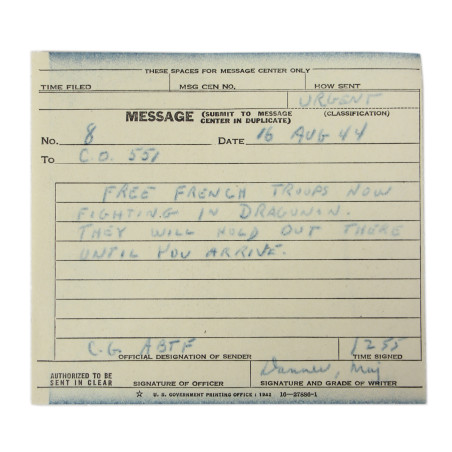 THESE SPACES FOR MESSAGE CENTER ONLY
TIME FILED MSG CEN NO. HOW SENT
URGENT
MESSAGE (SUBMIT TO MESSAGE CENTER IN DUPLICATE) (CLASSIFICATION)
No. 8 DATE 16 AUG 44
To C.O. 551
FREE FRENCH TROOPS NOW
FIGHTING IN DRAGUNON.
THEY WILL HOLD OUT THERE
UNTIL YOU ARRIVE.
C.G. ABTF 1255
OFFICIAL DESIGNATION OF SENDER TIME SIGNED
Maj
AUTHORIZED TO BE SENT IN CLEAR SIGNATURE OF OFFICER SIGNATURE AND GRADE OF WRITER
☆ U. S. GOVERNMENT PRINTING OFFICE : 1942